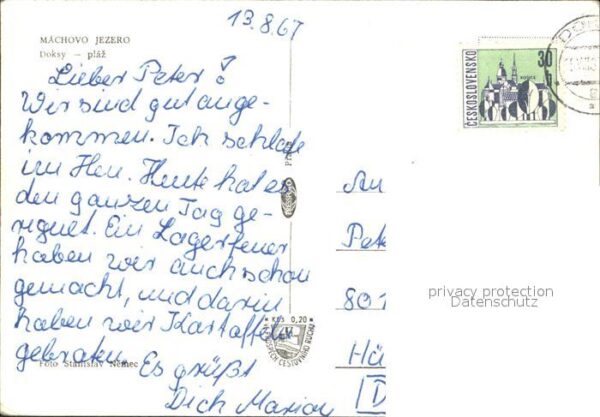 13.8.67
MÁCHOVO JEZERO
Doksy — pláž
Lieber Peter!
Wir sind gut ange-
kommen. Ich schlafe
im Heu. Heute hat es
den ganzen Tag ge-
regnet. Ein Lagerfeuer
haben wir auch schon
gemacht, und darin
haben wir Kartoffeln
gebraten. Es grüßt
Dich Marion
Foto Stanislav Němec
Kčs 0,20
ČESKOSLOVENSKO
30
h
An
Pet
801
privacy protection
Datenschutz